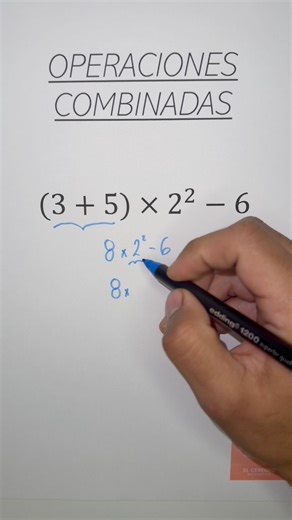 OPERACIONES
COMBINADAS
(3 + 5) × 2² − 6
8 × 2² − 6
8 ×
edding 1200